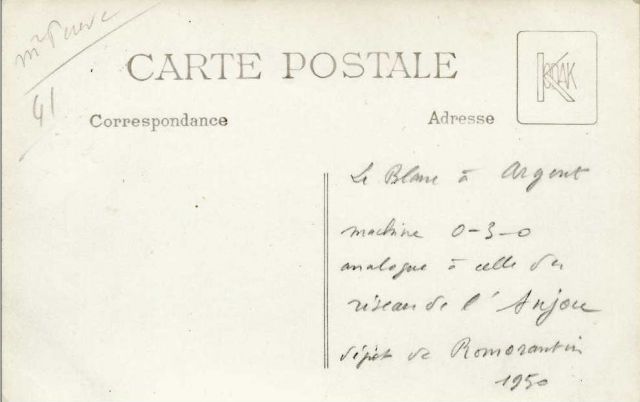 41
CARTE POSTALE
KODAK
Correspondance
Adresse
Le Blanc à Argent
machine 0-3-0
analogue à celle du
réseau de l'Anjou
dépôt de Romorantin
1950